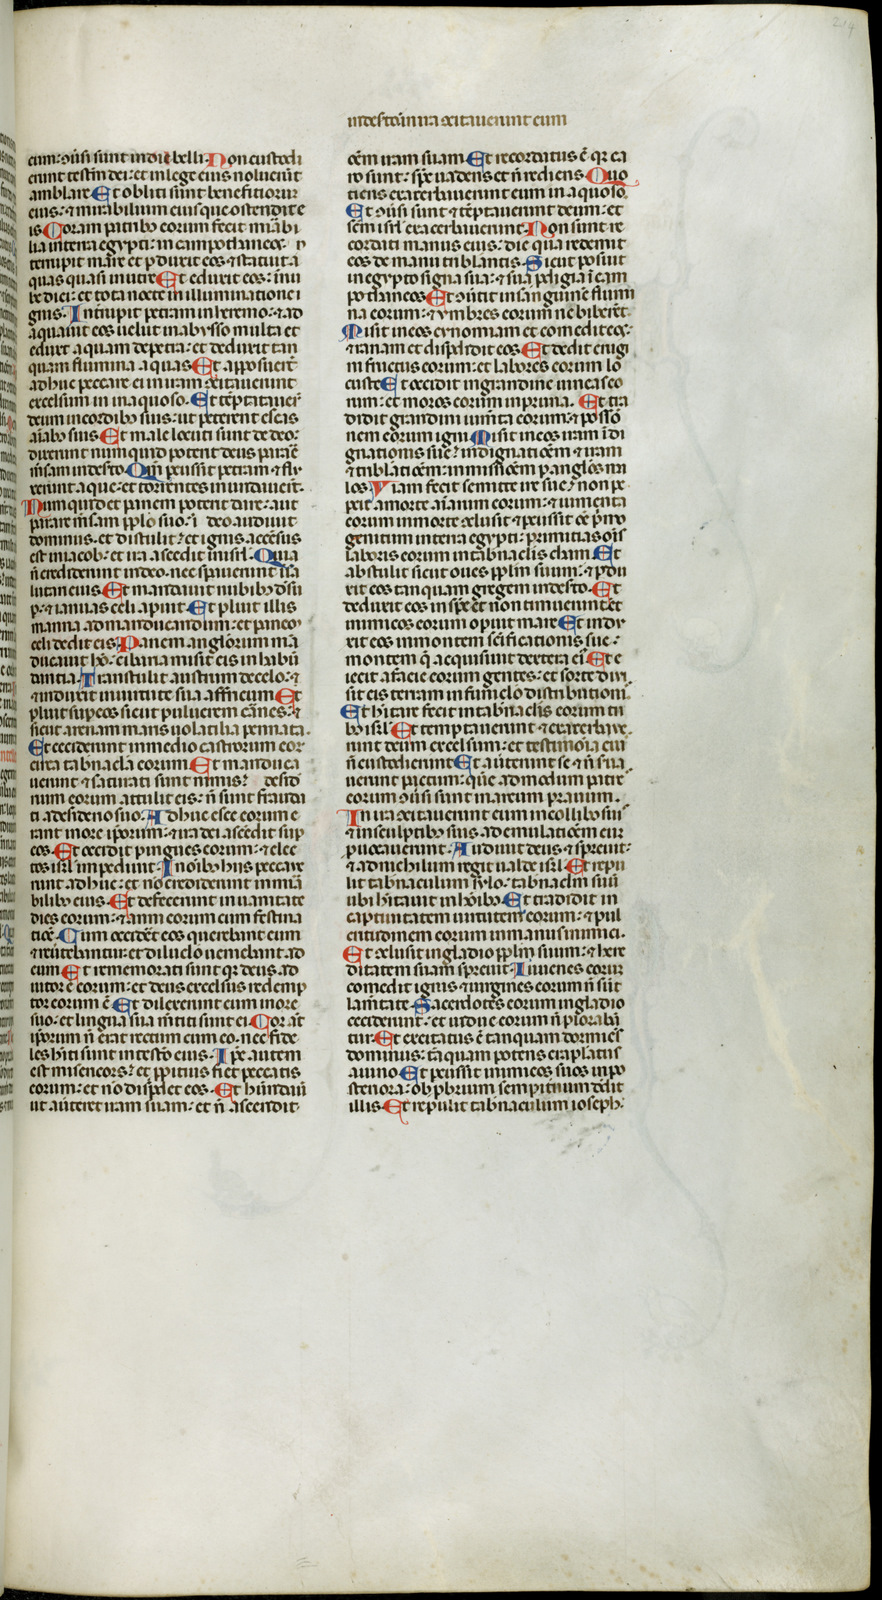 214
in deserto in ira concitaverunt eum
cum: ɔũsi sunt in die belli. Non custodi
erunt testm̃ dei: et in lege eius noluerũt
amblare. Et obliti sunt benefitiorum
eius: ⁊ mirabilium eius que ostendit e
is. Coram patribꝰ eorum fecit mirabi
lia in terra egypti: in campo thaneos. I
terrupit mare et ꝑduxit eos: ⁊ statuit a
quas quasi in utre. Et eduxit eos: ĩ nu
be diei: et tota nocte in illuminatione i
gnis. Int̃rupit petram in heremo: ⁊ ad
aquauit eos uelut in abysso multa. et
eduxt aquam de petra: et deduxit tan
quam flumina aquas. Et apposuer̃t
adhuc peccare ei in iram ɔcitauerunt
excelsum in inaquoso. Et tẽptauer̃t
deum in cordibꝰ suis: ut peterent escas
aĩabꝰ suis. Et male locuti sunt de deo:
dixerunt nunquid poterit deus parare
mẽsam in desto. Qm̃ ꝑcussit petram ⁊ flu
xerunt aque: et torrentes inundauer̃t.
Nunquid et panem poterit dare: aut
parare mẽsam pplo suo. I deo audiuit
dominus. et distulit: et ignis accẽsus
est in iacob: et ira ascẽdit in isrl. Quia
ñ crediderunt in deo. nec spauerunt ĩ sa
lutari eius. Et mandauit nubibꝰ desu
ꝑ: ⁊ ianuas celi apuit. Et pluit illis
manna ad manducandum: et panem
celi dedit eis. Panem anglorum mã
ducauit hõ: cibaria misit eis in habũ
dantia. Transtulit austrum de celo:
⁊ induxit in uirtute sua affricum. Et
pluit sup eos sicut puluerem carnes: ⁊
sicut arenam maris uolatilia pennata.
Et ceciderunt in medio castrorum eor
circa tabnacla eorum. Et manduca
uerunt ⁊ saturati sunt nimis: deside
rium eorum attulit eis: ñ sunt frauda
ti a desiderio suo. Adhuc esce eorum e
rant in ore iporum: ⁊ ira dei ascẽdit sup
eos. Et occidit pingues eorum: ⁊ elec
tos isrl impediuit. In oĩbꝰ hijs peccaue
runt adhuc: et nõ crediderunt in mira
bilibꝰ eius. Et defecerunt in uanitate
dies eorum: ⁊ anni eorum cum festina
tiõe. Cum occidẽt eos querebant eum
⁊ reu̾tebantur: et diluclo ueniebant ad
eum. Et rememorati sunt qꝫ deus ad
iutor ẽ eorum: et deus excelsus redemp
tor eorum ẽ. Et dilexerunt eum in ore
suo: et lingua sua mẽtiti sunt ei. Cor aũt
iporum ñ erat rectum cum eo: nec fide
les h̃iti sunt in testo eius. Ipe autem
est misericors: et ꝓpitius fiet peccatis
eorum: et nõ dispdet eos. Et hũndauit
ut au̾teret iram suam: et ñ ascendit.
oẽm iram suam. Et recordatus ẽ qꝫ ca
ro sunt: spc uadens et ñ rediens. Quo
tiens exacerbauerunt eum in aquoso
Et ɔũsi sunt ⁊ tẽptauerunt deum: et
scm isrl exacerbauerunt. Non sunt re
cordati manus eius: die qua redemit
eos de manu tribulantis. Sicut posuit
in egypto signa sua: ⁊ sua ꝓdigia ĩ cam
po thaneos. Et ɔu̾tit in sanguinẽ flumi
na eorum: ⁊ ymbres eorum ne biberẽt.
Misit in eos cynomiam et comedit eos:
⁊ ranam et dispdidit eos. Et dedit erugi
ni fructus eorum: et labores eorum lo
custe. Et occidit in grandine uineas eo
rum: et moros eorum in pruina. Et tra
didit grandini iumta eorum: ⁊ possẽ
nem eorum igni. Misit in eos iram ĩdi
gnationis sue: indignatiõem ⁊ iram
⁊ tribulatiõem: inmissiõem ꝑ anglos ma
los. Viam fecit semite ire sue: non pe
pcit a morte aĩarum eorum: ⁊ iumenta
eorum in morte ɔclusit. ⁊ ꝑcussit oẽ p̃mo
genitum in terra egypti: primitias oĩs
laboris eorum in tabnaclis cham. Et
abstulit sicut oues pplm suum: ⁊ ꝑdu
xit eos tanquam gregem in desto. Et
deduxit eos in spe ⁊ non timuerunt: et
inimicos eorum opuit mare. Et indu
xit eos in montem scificationis sue:
montem q̃ acquisiuit dextera ei. Et e
iecit a facie eorum gentes: et sorte diui
sit eis terram in funiclo distributionis
Et h̃itare fecit in tabnaclis eorum tri
bꝰ isrl. Et temptauerunt ⁊ exacerbaue
runt deum excelsum: et testimonia eiꝰ
ñ custodierunt. Et au̾terunt se ⁊ ñ s̾ua
uerunt pactum: quẽ admodum patres
eorum ɔũsi sunt in arcum prauum.
In ira ɔcitauerunt eum in collibꝰ suis
⁊ in sculptibꝰ suis ad emulatiõem eum
ꝓuocauerunt. Audiuit deus ⁊ spreuit:
⁊ ad nichilum regit ualde isrl. Et repu
lit tabnaculum sylo: tabnaclm suũ
ubi h̃itauit in hõibꝰ. Et tradidit in
captiuitatem uirtutem eorum: ⁊ pul
critudinem eorum in manus inimici.
Et ɔclusit in gladio pplm suum: ⁊ here
ditatem suam spreuit. Iuuenes eorum
comedit ignis: ⁊ uirgines eorum ñ sũt
lamtate. Sacerdotes eorum in gladio
ceciderunt: et uidue eorum ñ plorabũ
tur. Et excitatus ẽ tanquam dormiẽs
dominus: tãquam potens craplatus
a uino. Et ꝑcussit inimicos suos in po
steriora: obꝓbrium sempitnum dedit
illis. Et repulit tabnaculum ioseph: